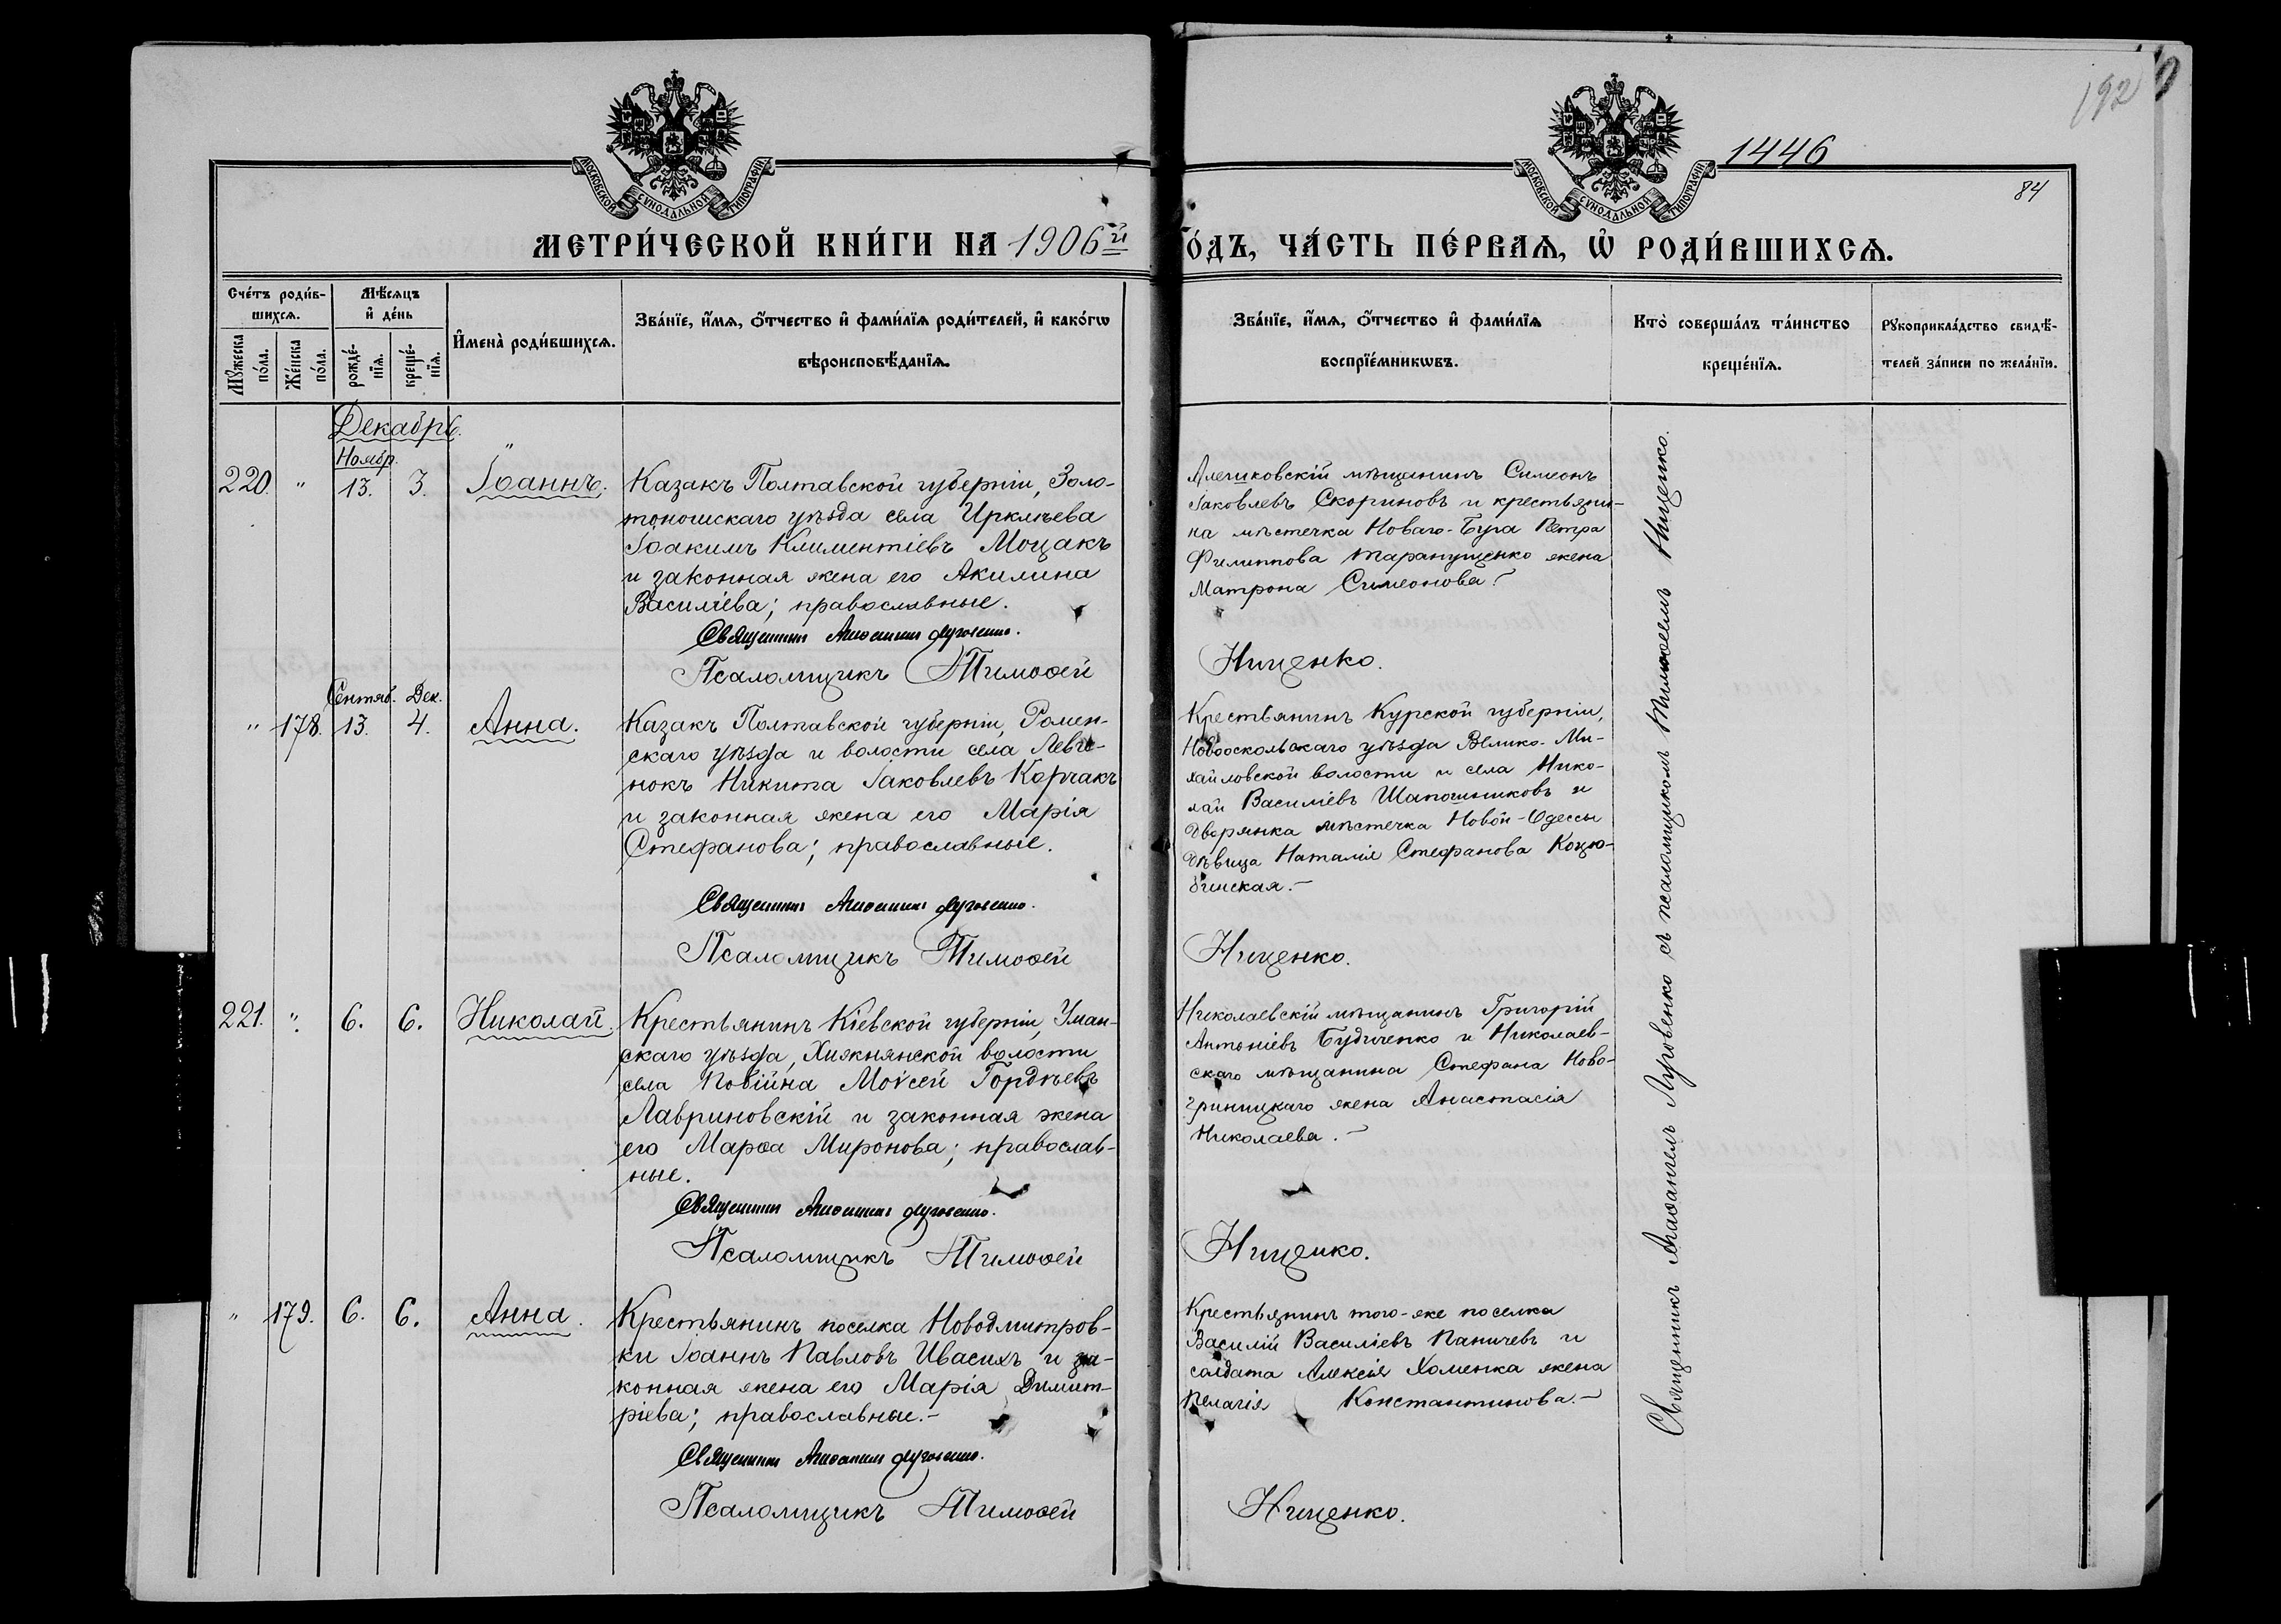 192
1446
84
МОСКОВСКОЙ СѴНОДАЛЬНОЙ ТИПОГРАФІИ
МОСКОВСКОЙ СѴНОДАЛЬНОЙ ТИПОГРАФІИ
МЕТРИ́ЧЕСКОЙ КНИ́ГИ НА 1906й
О́ДЪ, ЧА́СТЬ ПЕ́РВАѦ, Ѡ РОДИ́ВШИХСѦ.
Сче́тъ роди́в-
шихсѧ.
Мꙋжеска по́ла.
Же́нска по́ла.
Мѣ́сѧцъ
и де́нь
рожде́-
нїѧ.
креще́-
нїѧ.
Имена̀ роди́вшихсѧ.
Зва́нїе, и́мѧ, ѻ́тчество и фами́лїѧ роди́телей, и како́гѡ
вѣроисповѣ́данїѧ.
Зва́нїе, и́мѧ, ѻ́тчество и фами́лїѧ
воспрїе́мникѡвъ.
Кто̀ соверша́лъ та́инство
креще́нїѧ.
Рꙋкоприкла́дство свидѣ́-
телей за́писи по жела́нїю.
Декабрь.
Ноябр.
220. " 13. 3. Іоаннъ.
Казакъ Полтавской губерніи, Золо-
тоношскаго уѣзда села Ирклѣева
Іоакимъ Климентіевъ Моцакъ
и законная жена его Акилина
Василіева; православные.
Священникъ Агаѳангелъ Луговенко.
Псаломщикъ Тимоѳей
Алешковскій мѣщанинъ Симеонъ
Іаковлевъ Скориновъ и крестьяни-
на мѣстечка Новаго-Буга Петра
Филиппова Таранущенко жена
Матрона Симеонова.
Нищенко.
Сентяб. Дек.
" 178. 13. 4. Анна.
Казакъ Полтавской губерніи, Ромен-
скаго уѣзда и волости села Левче-
нокъ Никита Іаковлевъ Корчакъ
и законная жена его Марія
Стефанова; православные.
Священникъ Агаѳангелъ Луговенко.
Псаломщикъ Тимоѳей
Крестьянинъ Курской губерніи,
Новооскольскаго уѣзда Велико-Ми-
хайловской волости и села Нико-
лай Василіевъ Шапошниковъ и
дворянка мѣстечка Новой-Одессы
дѣвица Наталія Стефанова Коцю-
бинская.-
Нищенко.
221. " 6. 6. Николай.
Крестьянинъ Кіевской губерніи, Уман-
скаго уѣзда, Хижнянской волости
села Повійна Моѵсей Гордѣевъ
Лавриновскій и законная жена
его Марѳа Миронова; православ-
ные.
Священникъ Агаѳангелъ Луговенко.
Псаломщикъ Тимоѳей
Николаевскій мѣщанинъ Григорій
Антоніевъ Будиченко и Николаев-
скаго мѣщанина Стефана Ново-
гриницкаго жена Анастасія
Николаева.-
Нищенко.
" 179. 6. 6. Анна.
Крестьянинъ поселка Новодмитров-
ки Іоаннъ Павловъ Ивасихъ и за-
конная жена его Марія Димит-
ріева; православные.-
Священникъ Агаѳангелъ Луговенко.
Псаломщикъ Тимоѳей
Крестьянинъ того-же поселка
Василій Василіевъ Паничевъ и
солдата Алексія Хоменка жена
Пелагія Константинова.-
Нищенко.
Священникъ Агаѳангелъ Луговенко съ псаломщикомъ Тимоѳеемъ Нищенко.